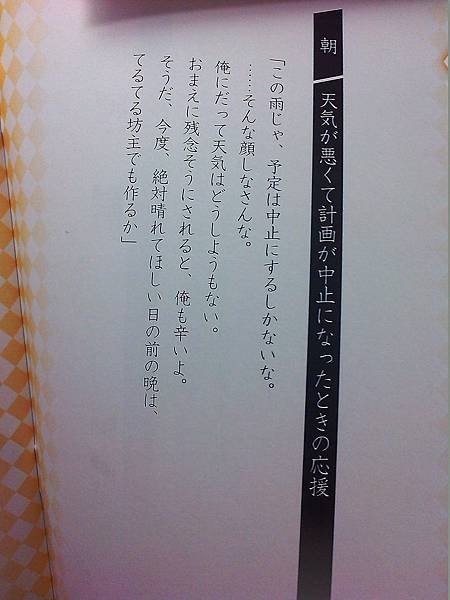 朝
天気が悪くて計画が中止になったときの応援
「この雨じゃ、予定は中止にするしかないな。
……そんな顔しなさんな。
俺にだって天気はどうしようもない。
おまえに残念そうにされると、俺も辛いよ。
そうだ、今度、絶対晴れてほしい日の前の晩は、
てるてる坊主でも作るか」